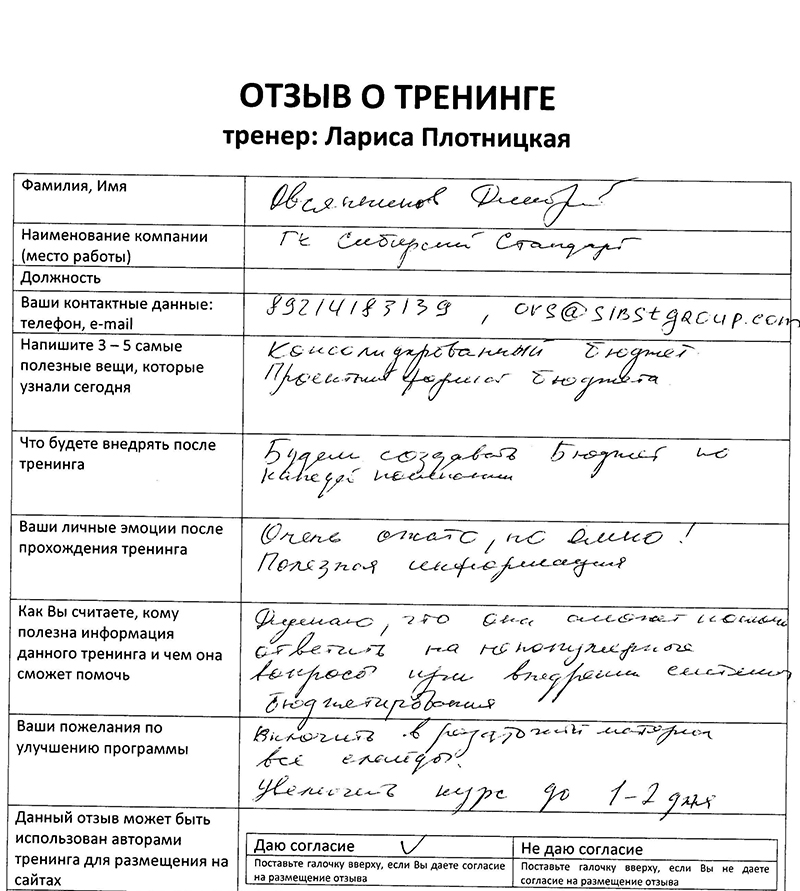 ОТЗЫВ О ТРЕНИНГЕ
тренер: Лариса Плотницкая
Фамилия, Имя
Овсянников Дмитрий
Наименование компании
(место работы)
ГК Сибирский Стандарт
Должность
Ваши контактные данные:
телефон, e-mail
89214183139 , ovs@sibstgroup.com
Напишите 3 – 5 самые
полезные вещи, которые
узнали сегодня
Консолидированный бюджет
Проектный формат бюджета
Что будете внедрять после
тренинга
Будем создавать Бюджет по
каждой компании
Ваши личные эмоции после
прохождения тренинга
Очень сжато, но ёмко!
Полезная информация
Как Вы считаете, кому
полезна информация
данного тренинга и чем она
сможет помочь
Думаю, что она сможет
ответить на
вопросы при внедрении системы
бюджетирования
Ваши пожелания по
улучшению программы
Включить в раздаточный материал
все слайды.
Увеличить курс до 1-2 дня
Данный отзыв может быть
использован авторами
тренинга для размещения на
сайтах
Даю согласие
Не даю согласие
Поставьте галочку вверху, если Вы даете согласие
на размещение отзыва
Поставьте галочку вверху, если Вы не даете
согласие на размещение отзыва